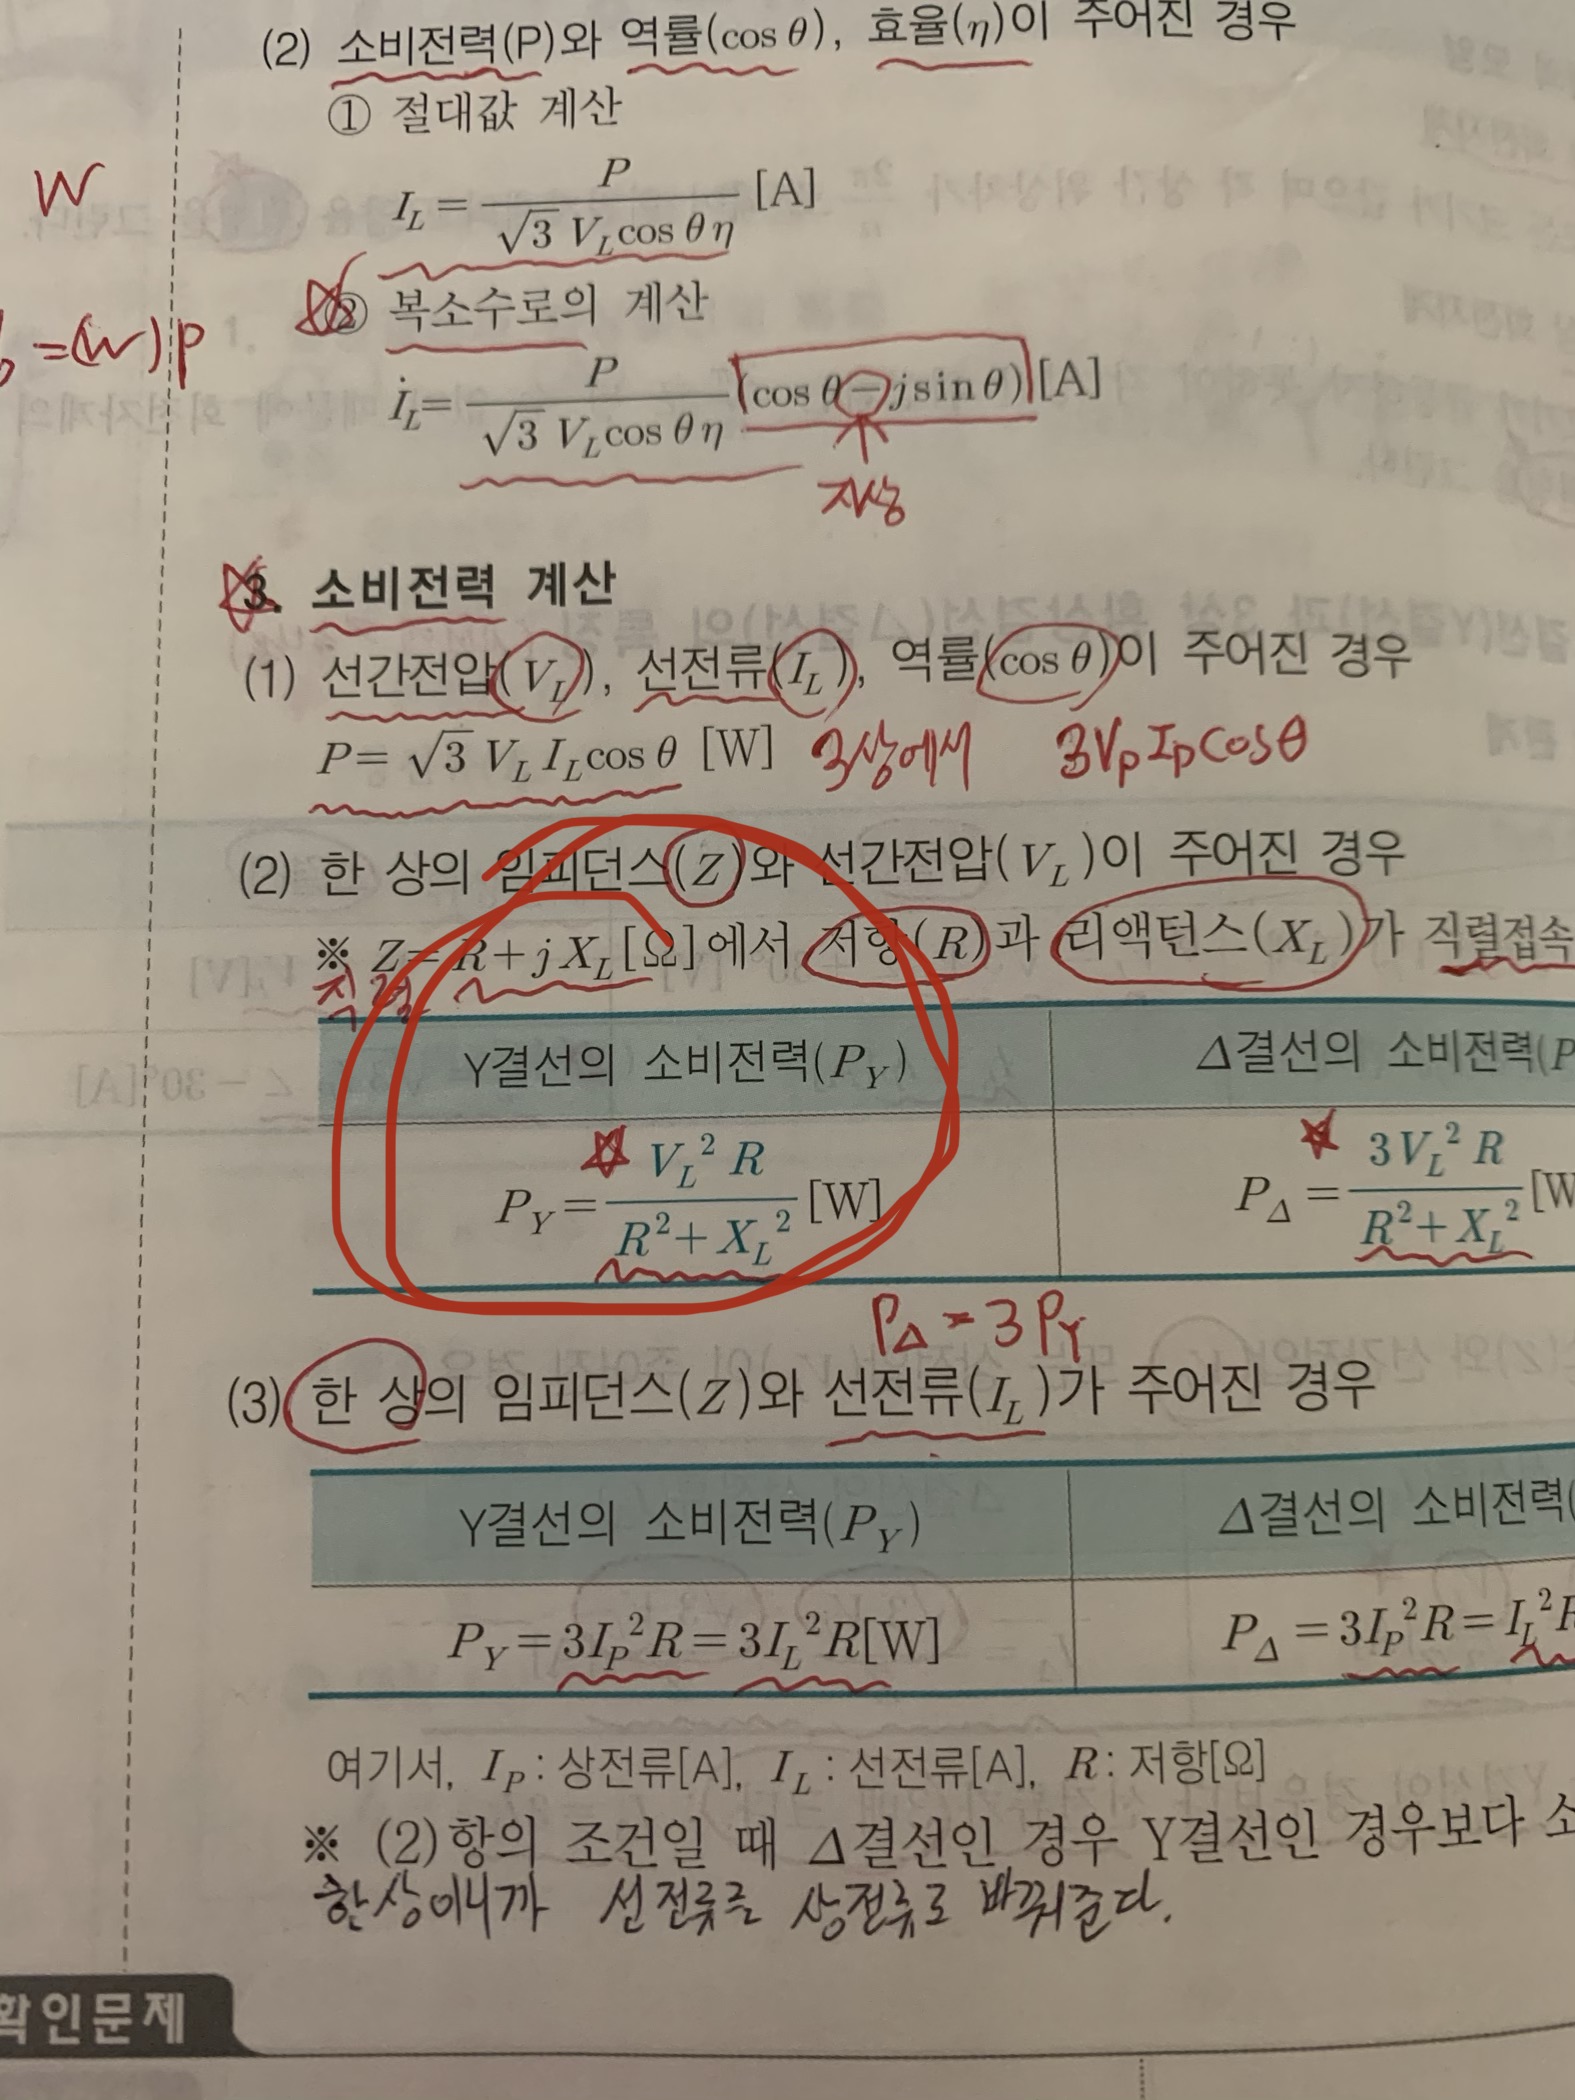 (2) 소비전력(P)와 역률(cos θ), 효율(η)이 주어진 경우
① 절대값 계산
W
I_L = P / (√3 V_L cos θ η) [A]
② 복소수로의 계산
=(W)P
İ_L = P / (√3 V_L cos θ η) (cos θ − j sin θ) [A]
지상
3. 소비전력 계산
(1) 선간전압(V_L), 선전류(I_L), 역률(cos θ)이 주어진 경우
P = √3 V_L I_L cos θ [W] 3상에서 3V_P I_P cos θ
(2) 한 상의 임피던스(Z)와 선간전압(V_L)이 주어진 경우
※ Z = R + j X_L [Ω]에서 저항(R)과 리액턴스(X_L)가 직렬접속
직렬
Y결선의 소비전력(P_Y) Δ결선의 소비전력(P
P_Y = V_L² R / (R² + X_L²) [W] P_Δ = 3 V_L² R / (R² + X_L²) [W
P_Δ = 3 P_Y
(3) 한 상의 임피던스(Z)와 선전류(I_L)가 주어진 경우
Y결선의 소비전력(P_Y) Δ결선의 소비전력(
P_Y = 3I_P² R = 3I_L² R[W] P_Δ = 3I_P² R = I_L² R
여기서, I_P : 상전류[A], I_L : 선전류[A], R : 저항[Ω]
※ (2)항의 조건일 때 Δ결선인 경우 Y결선인 경우보다 소
한상이니까 선전류를 상전류로 바꿔준다.
확인문제